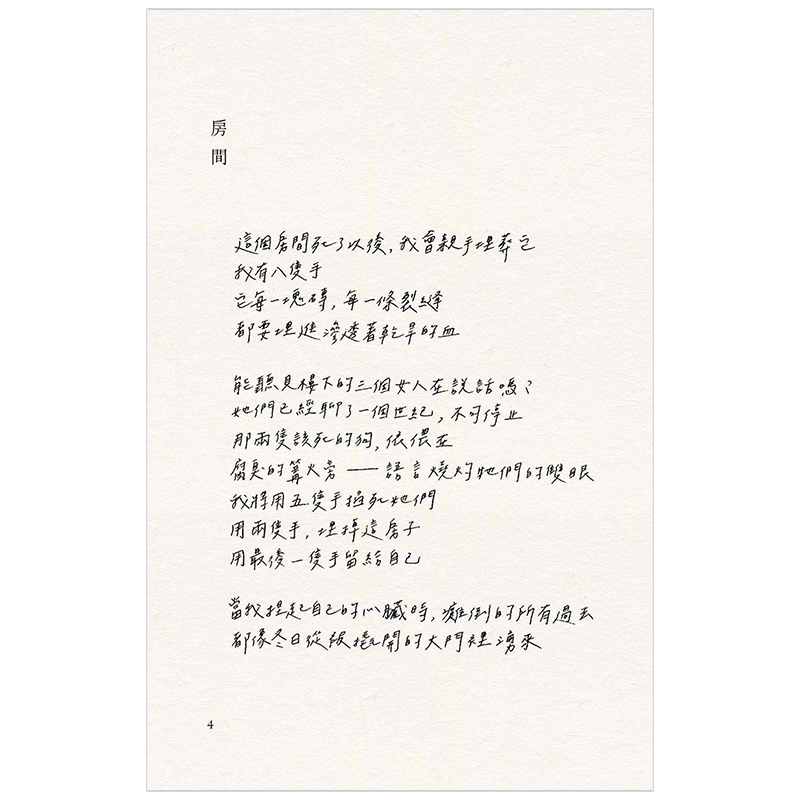 房間
這個房間死了以後，我會親手埋葬它
我有八隻手
它每一塊磚，每一條裂縫
都要埋進滲透著乾旱的血
能聽見樓下的三個女人在說話嗎？
她們已經聊了一個世紀，不可停止
那兩隻該死的狗，依偎在
腐臭的篝火旁——語言燒灼牠們的雙眼
我將用五隻手掐死她們
用兩隻手，埋掉這房子
用最後一隻手留給自己
當我捏起自己的心臟時，癱倒的所有過去
都像冬日從被撬開的大門裡湧來
4